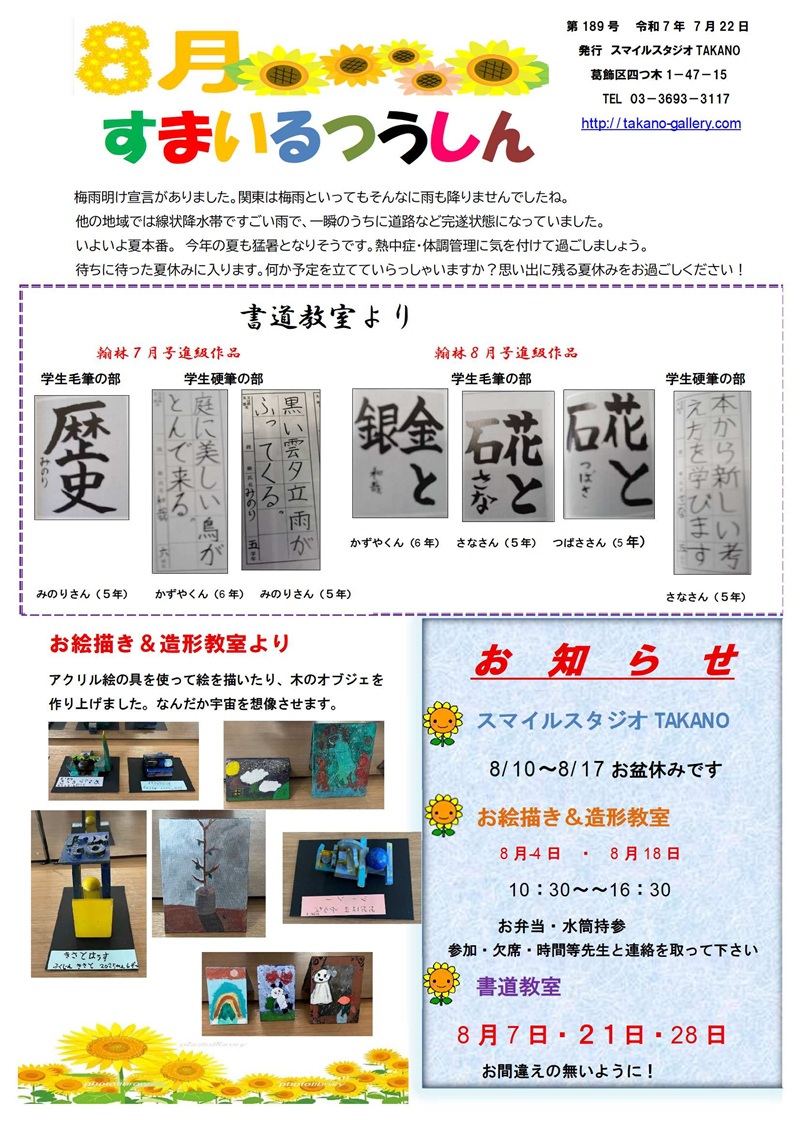 8月
すまいるつうしん
第189号　令和7年 7月22日
発行　スマイルスタジオTAKANO
葛飾区四つ木1－47－15
TEL 03－3693－3117
http://takano-gallery.com
梅雨明け宣言がありました。関東は梅雨といってもそんなに雨も降りませんでしたね。
他の地域では線状降水帯ですごい雨で、一瞬のうちに道路など完遂状態になっていました。
いよいよ夏本番。 今年の夏も猛暑となりそうです。熱中症・体調管理に気を付けて過ごしましょう。
待ちに待った夏休みに入ります。何か予定を立てていらっしゃいますか？思い出に残る夏休みをお過ごしください！
書道教室より
翰林7月号進級作品
学生毛筆の部
学生硬筆の部
歴史
みのり
庭に美しい鳥が
とんで来る。
和哉
六
黒い雲夕立雨が
ふってくる。
みのり
五
みのりさん（５年）
かずやくん（6年）
みのりさん（５年）
翰林8月号進級作品
学生毛筆の部
学生硬筆の部
金と
銀
和哉
花と
石
さな
花と
石
つばさ
本から新しい考
え方を学びます
さな
かずやくん（6年）
さなさん（５年）
つばささん（5年）
さなさん（５年）
お絵描き＆造形教室より
アクリル絵の具を使って絵を描いたり、木のオブジェを
作り上げました。なんだか宇宙を想像させます。
きさとはうす
photolibrary
photolibrary
photolibrary
お知らせ
スマイルスタジオTAKANO
8/10～8/17お盆休みです
お絵描き＆造形教室
8月-4日　・　8月18日
10：30～～16：30
お弁当・水筒持参
参加・欠席・時間等先生と連絡を取って下さい
書道教室
8月7日・21日・28日
お間違えの無いように！